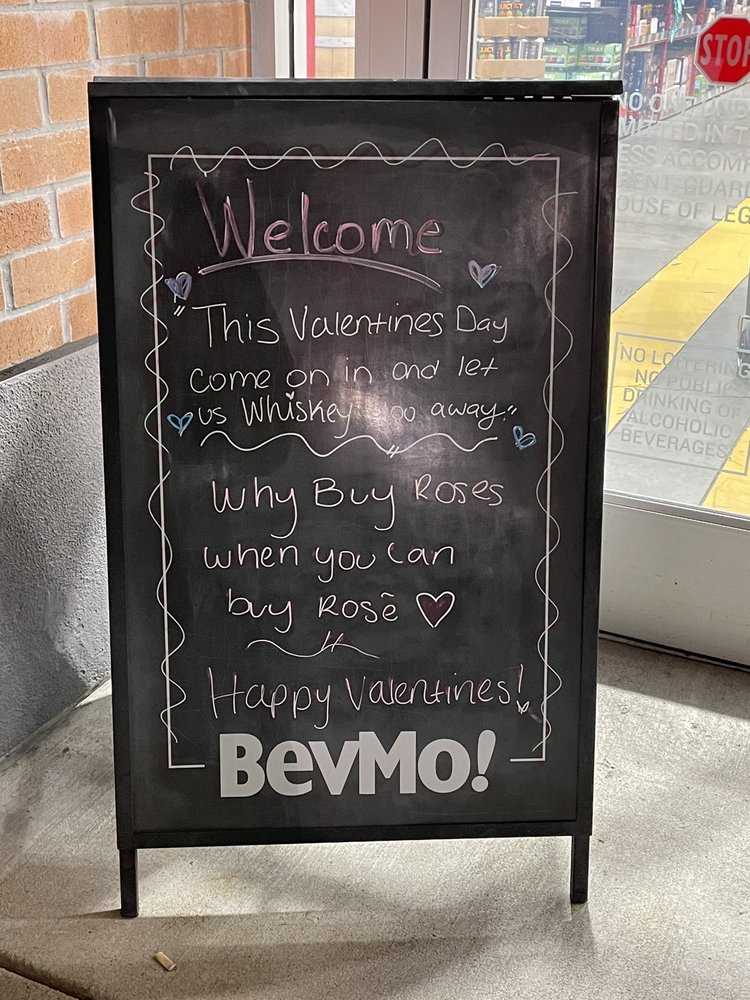 Welcome
"This Valentines Day
come on in and let
us Whiskey you away."
Why Buy Roses
when you can
buy Rosē
Happy Valentines!
BevMo!
STOP
NO LOITERING
NO PUBLIC
DRINKING OF
ALCOHOLIC
BEVERAGES